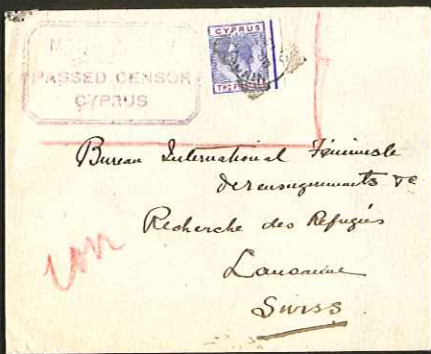 PASSED CENSOR
CYPRUS
CYPRUS
Bureau International Féminale
de renseignements &c
Recherche des Refugiés
Lausanne
Swiss